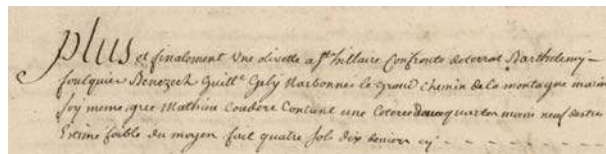 Plus et finaloment Une olivette a St hillaire Confronte deterral Barthelemy
foulquier Benezech Guille Gely Narbonnés le Grand chemin de la montagne marin
soy meme grec Mathieu Coudere Contient une Coteree quarton moins neuf dextres
Estimé foible du moyen fait quatre sols dix deniers cy